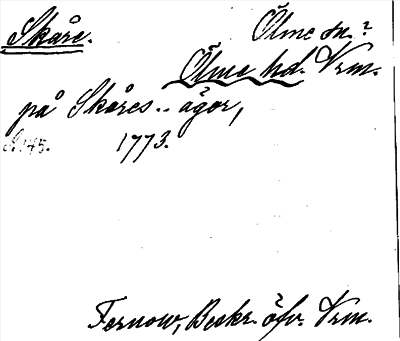 Skåre. Ölme sn.?
Ölme hd. Vrm.
på Skåres.. ägor,
S. 145. 1773.
Fernow, Beskr. öfv. Vrm.